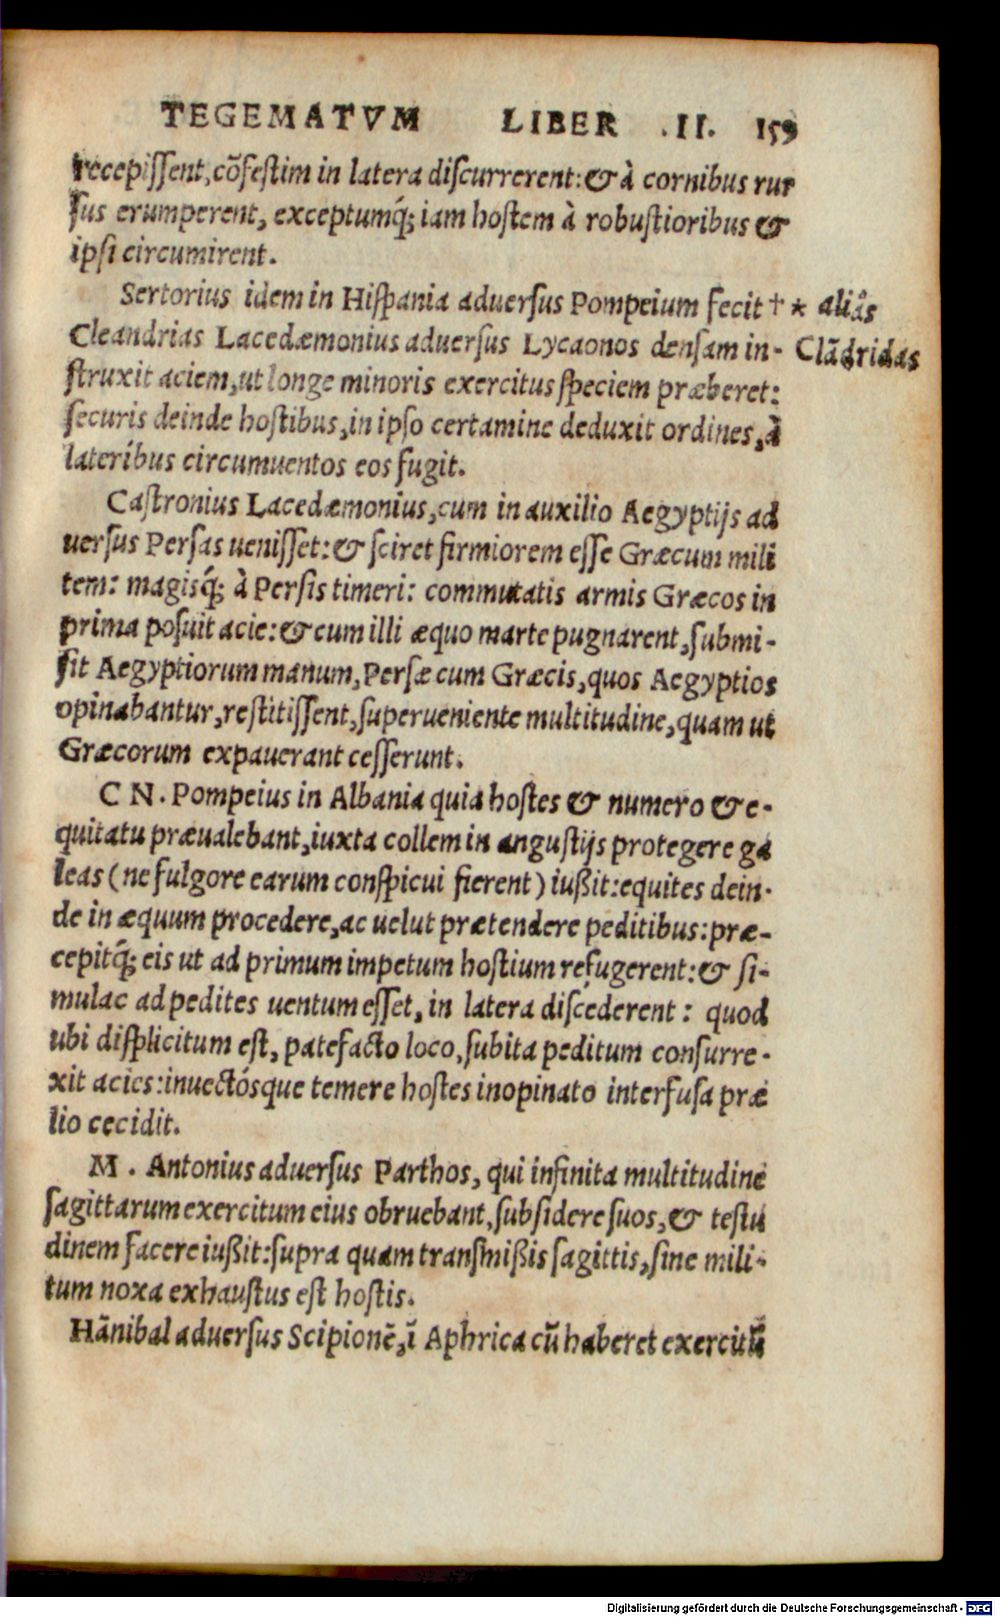 TEGEMATVM LIBER .II. 159
recepissent, cõfestim in latera discurrerent: & à cornibus rur
sus erumperent, exceptumq́; iam hostem à robustioribus &
ipsi circumirent.
Sertorius idem in Hispania aduersus Pompeium fecit † * aliâs
Cleandrias Lacedæmonius aduersus Lycaonos densam in- Clãdridas
struxit aciem, ut longe minoris exercitus speciem præberet:
securis deinde hostibus, in ipso certamine deduxit ordines, à
lateribus circumuentos eos fugit.
Castronius Lacedæmonius, cum in auxilio Aegyptijs ad
uersus Persas uenisset: & sciret firmiorem esse Græcum mili
tem: magisq́; à Persis timeri: commutatis armis Græcos in
prima posuit acie: & cum illi æquo marte pugnarent, submi-
sit Aegyptiorum manum, Persæ cum Græcis, quos Aegyptios
opinabantur, restitissent, superueniente multitudine, quam ut
Græcorum expauerant cesserunt.
C N. Pompeius in Albania quia hostes & numero & e-
quitatu præualebant, iuxta collem in angustijs protegere ga
leas (ne fulgore earum conspicui fierent) iußit: equites dein-
de in æquum procedere, ac uelut prætendere peditibus: præ-
cepitq́; eis ut ad primum impetum hostium refugerent: & si-
mulac ad pedites uentum esset, in latera discederent: quod
ubi displicitum est, patefacto loco, subita peditum consurre-
xit acies: inuectósque temere hostes inopinato interfusa præ
lio cecidit.
M. Antonius aduersus Parthos, qui infinita multitudine
sagittarum exercitum eius obruebant, subsidere suos, & testu
dinem facere iußit: supra quam transmißis sagittis, sine mili-
tum noxa exhaustus est hostis.
Hãnibal aduersus Scipionẽ, ĩ Aphrica cũ haberet exercitũ
Digitalisierung gefördert durch die Deutsche Forschungsgemeinschaft - DFG